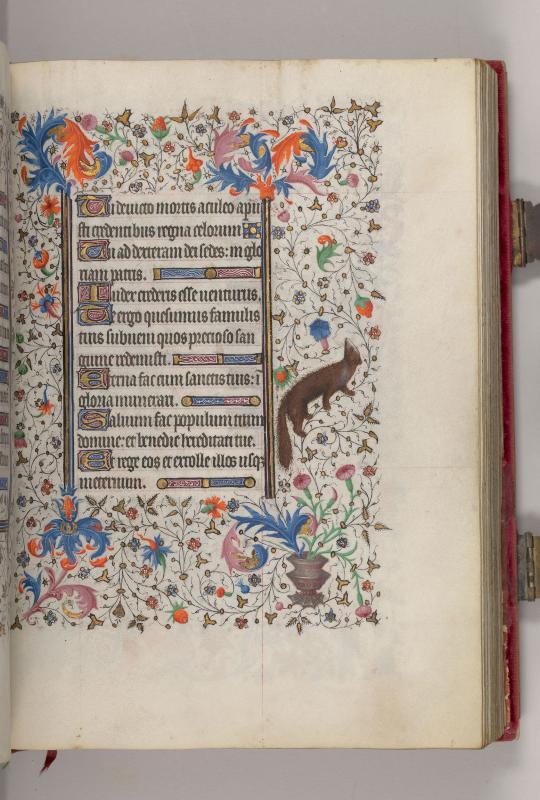 Tu devicto mortis aculeo apui
sti credentibus regna celorum
Tu ad dexteram dei sedes: in glo
riam patris.
Iudex crederis esse uenturus.
Te ergo quesumus famulis
tuis subueni quos precioso san
guine redemisti.
Eterna fac cum sanctis tuis: i
gloria munerari.
Saluum fac populum tuum
domine: et benedic hereditati tue.
Et rege eos et extolle illos usqz
in eternum.